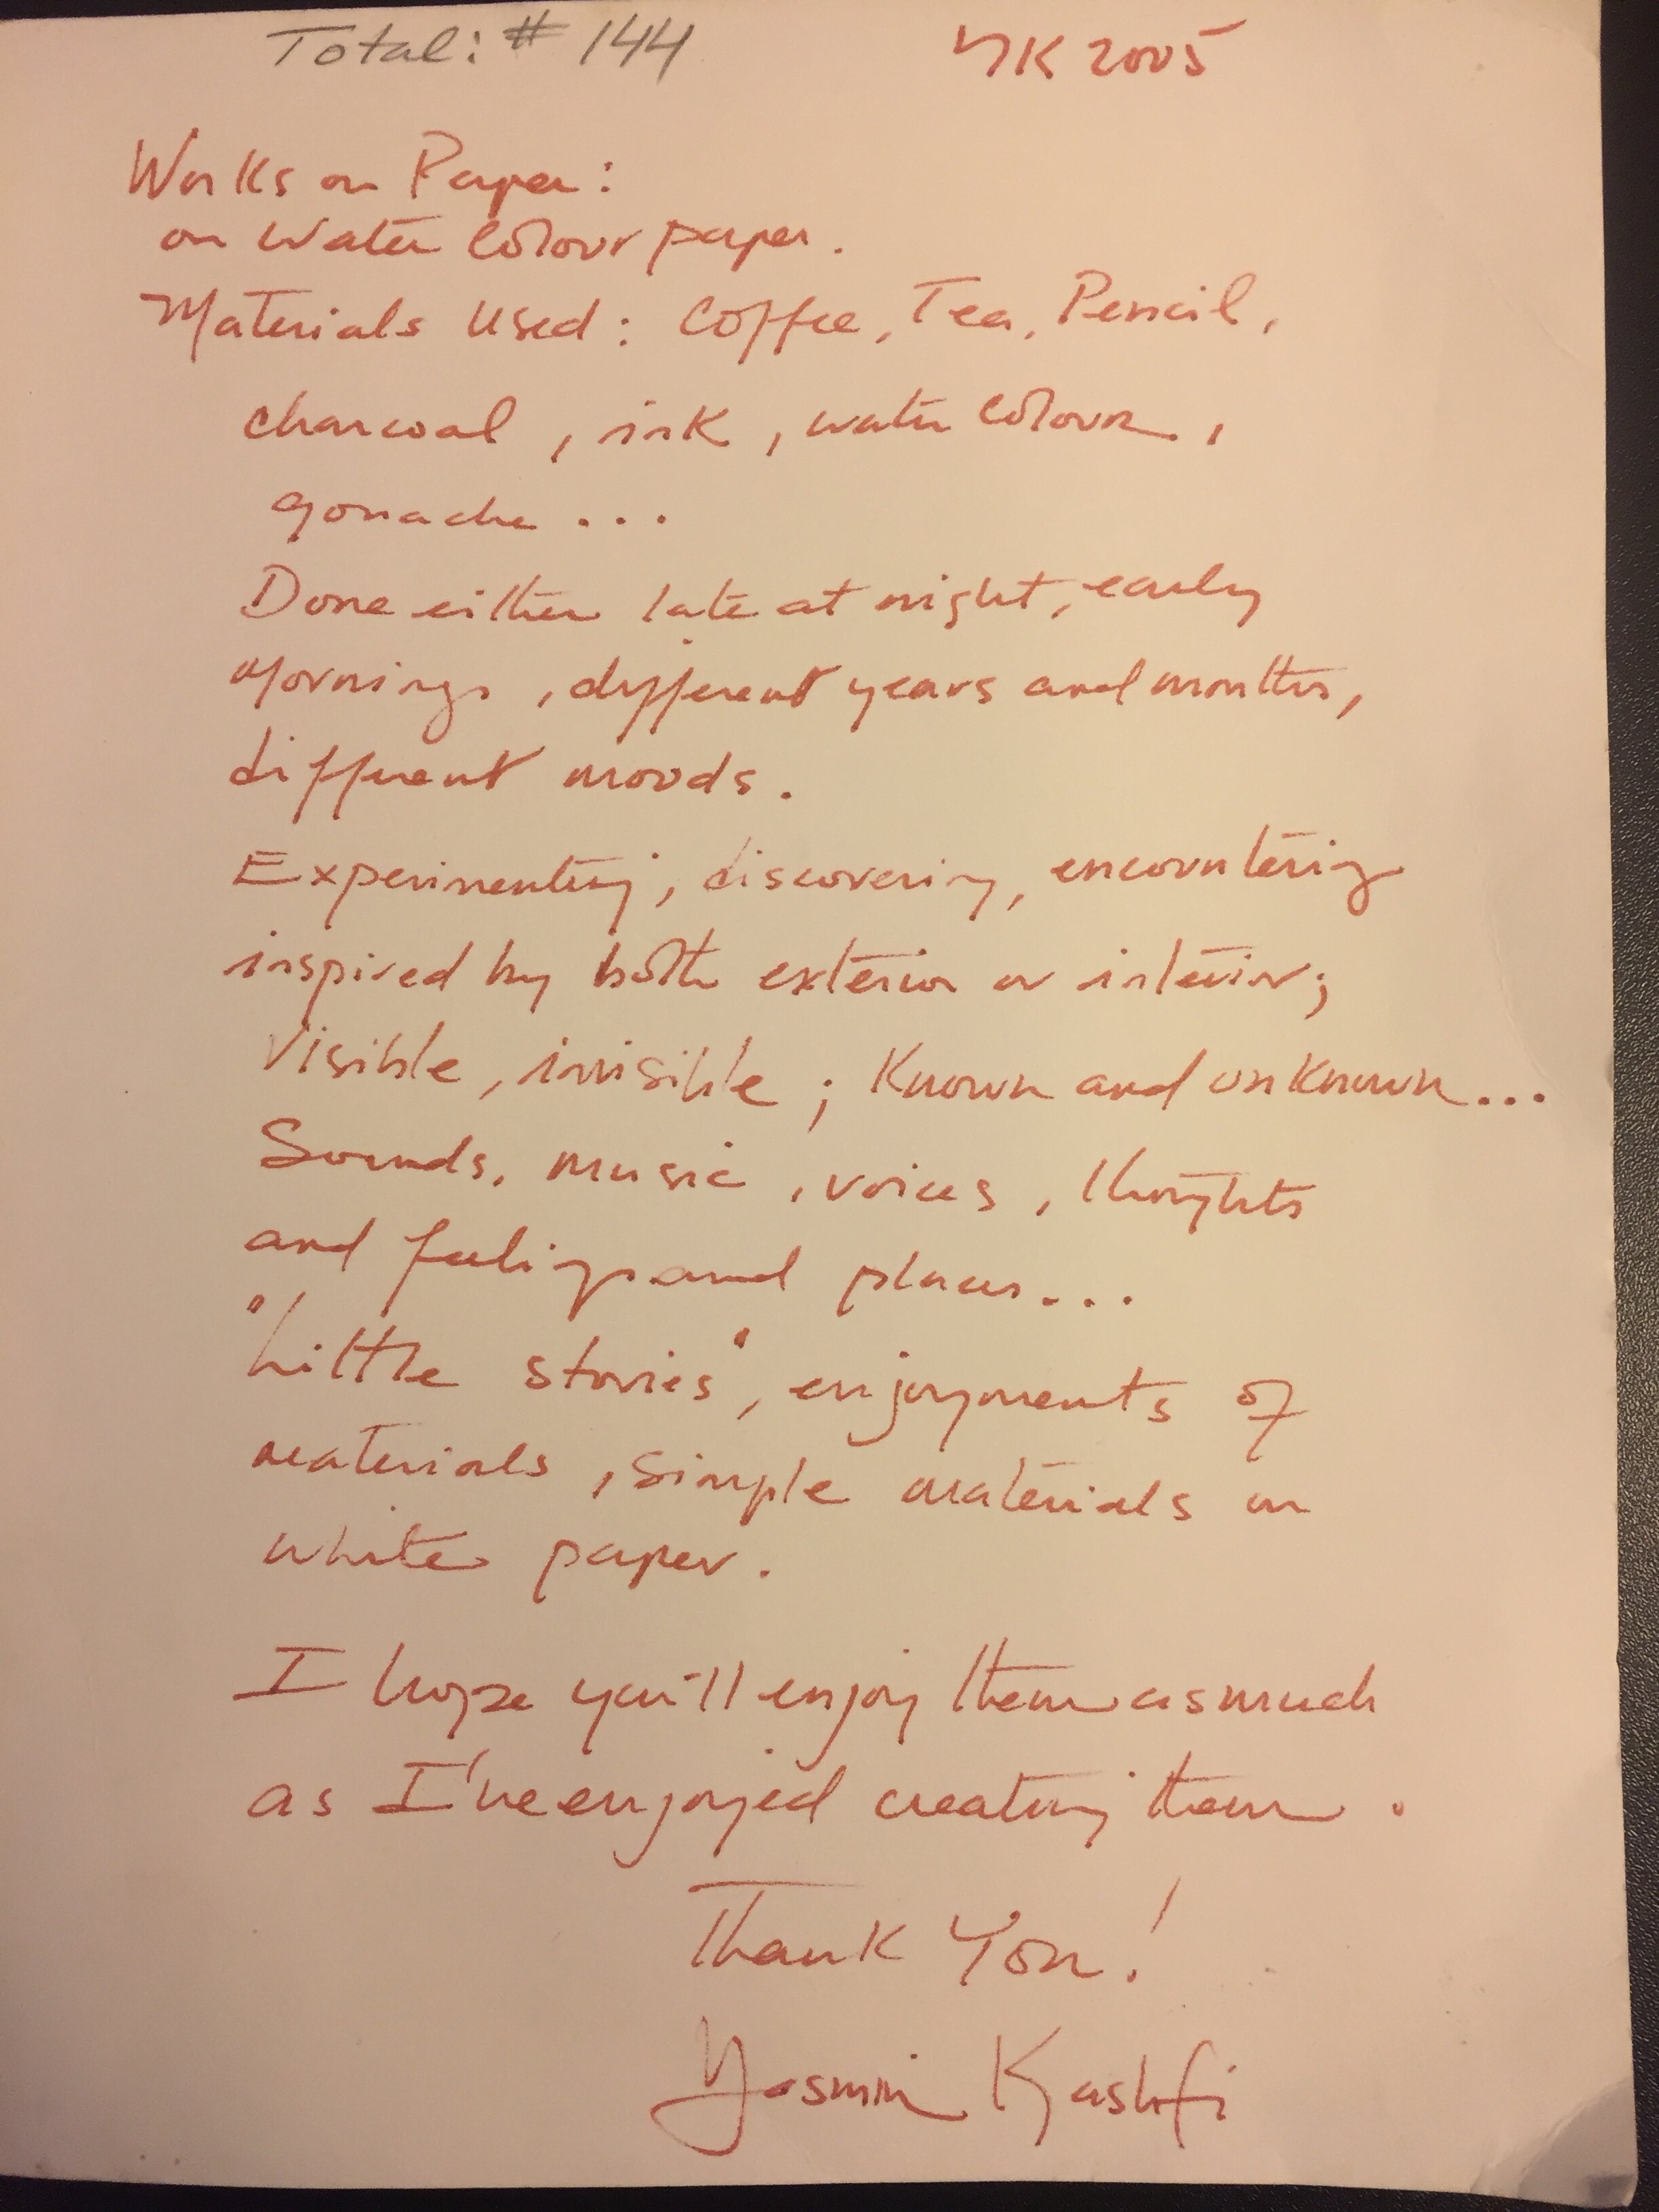 Total: # 144
YK 2005
Works on Paper:
on Water Colour paper.
Materials Used: Coffee, Tea, Pencil,
charcoal, ink, water colour,
gouache...
Done either late at night, early
mornings, different years and months,
different moods.
Experimenting, discovering, encountering
inspired by both exterior or interior;
Visible, invisible; Known and unknown...
Sounds, music, voices, thoughts
and feelings and places...
"Little stories", enjoyments of
materials, simple materials on
white paper.
I hope you'll enjoy them as much
as I've enjoyed creating them.
Thank You!
Yasmin Kashfi